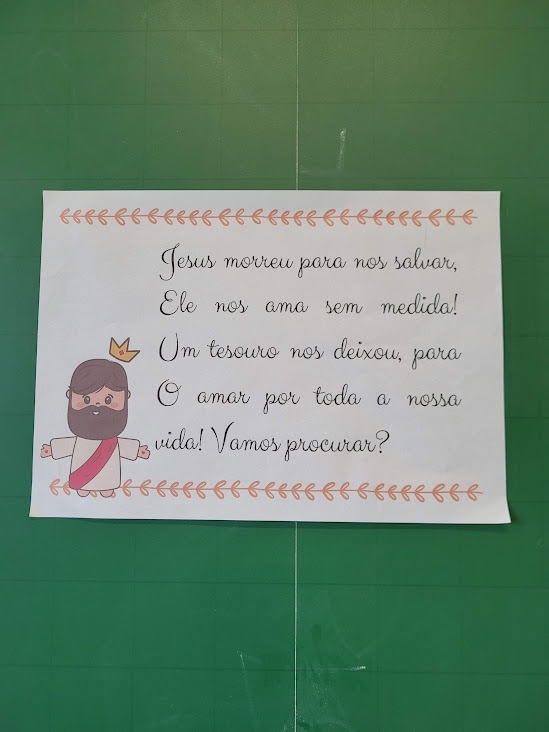 Jesus morreu para nos salvar,
Ele nos ama sem medida!
Um tesouro nos deixou, para
O amar por toda a nossa
vida! Vamos procurar?